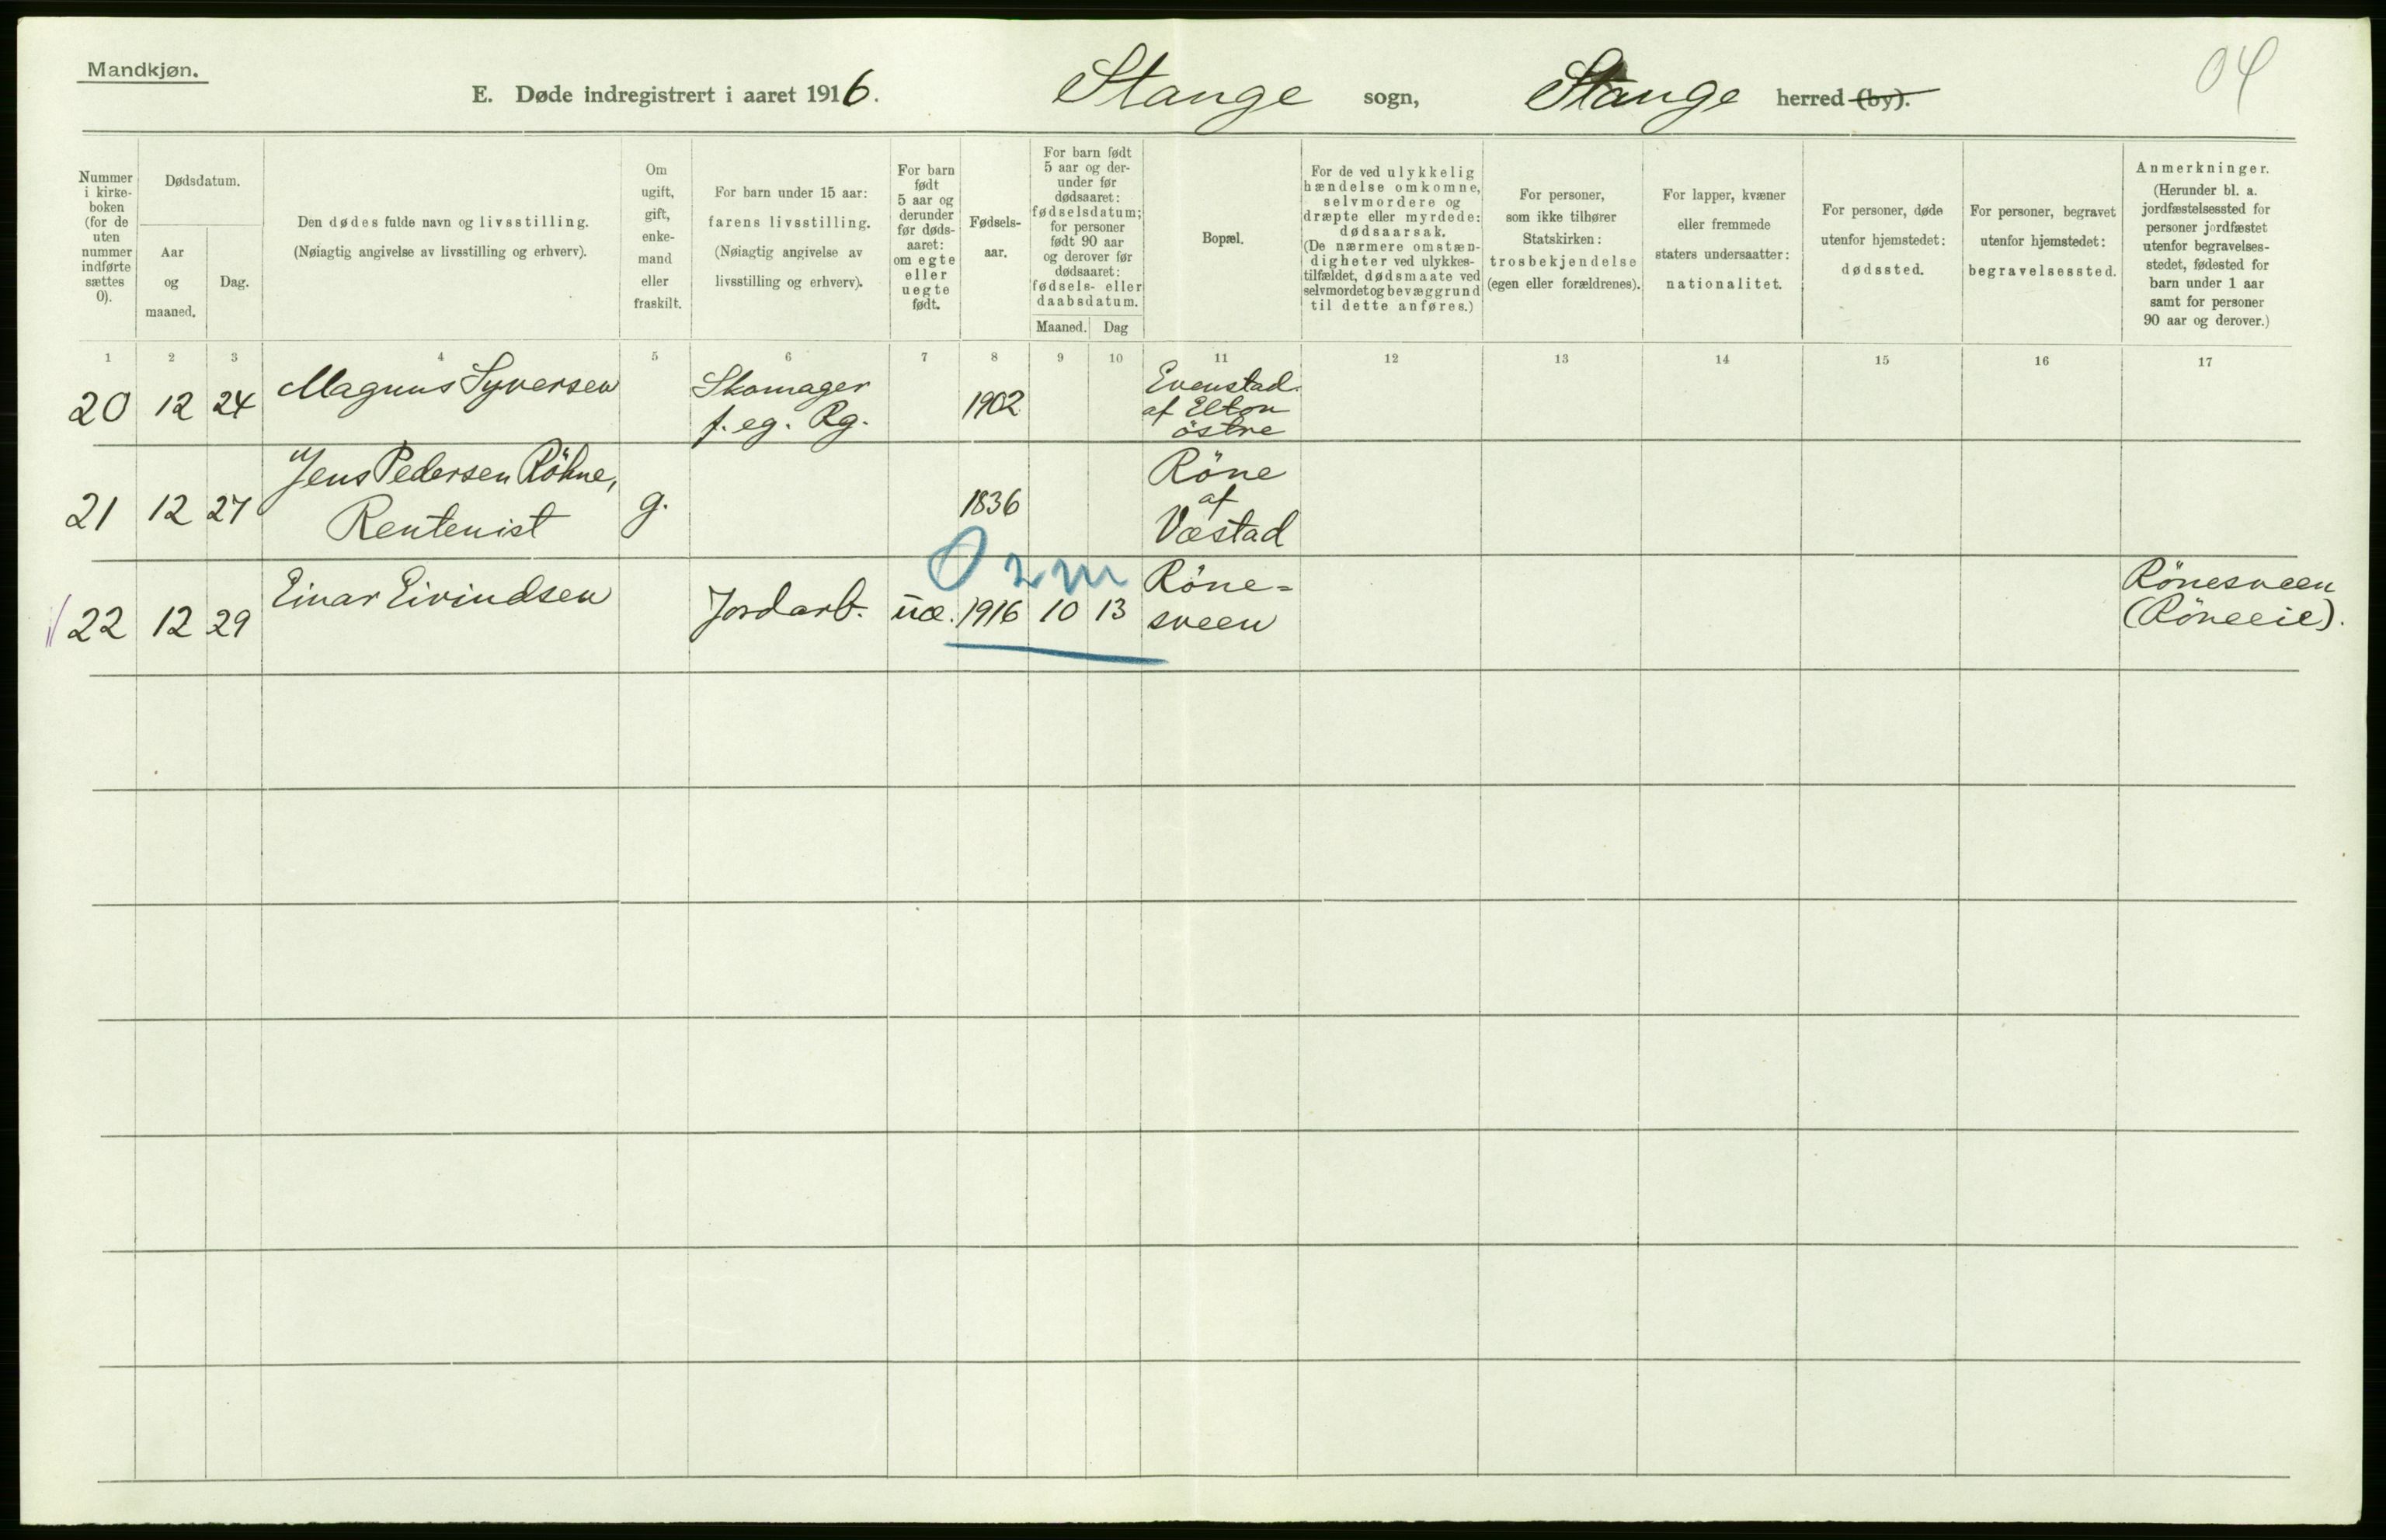 Mandkjøn.
04
E. Døde indregistrert i aaret 1916. Stange sogn, Stange herred (by).
Nummer
i kirke-
boken
(for de
uten
nummer
indførte
sættes
0).
Dødsdatum.
Aar
og
maaned.
Dag.
Den dødes fulde navn og livsstilling.
(Nøiagtig angivelse av livsstilling og erhverv).
Om
ugift,
gift,
enke-
mand
eller
fraskilt.
For barn under 15 aar:
farens livsstilling.
(Nøiagtig angivelse av
livsstilling og erhverv).
For barn
født
5 aar og
derunder
før døds-
aaret:
om egte
eller
uegte
født.
Fødsels-
aar.
For barn født
5 aar og der-
under før
dødsaaret:
fødselsdatum;
for personer
født 90 aar
og derover før
dødsaaret:
fødsels- eller
daabsdatum.
Maaned. Dag
Bopæl.
For de ved ulykkelig
hændelse omkomne,
selvmordere og
dræpte eller myrdede:
dødsaarsak.
(De nærmere omstæn-
digheter ved ulykkes-
tilfældet, dødsmaate ved
selvmordet og bevæggrund
til dette anføres.)
For personer,
som ikke tilhører
Statskirken:
trosbekjendelse
(egen eller forældrenes).
For lapper, kvæner
eller fremmede
staters undersaatter:
nationalitet.
For personer, døde
utenfor hjemstedet:
dødssted.
For personer, begravet
utenfor hjemstedet:
begravelsessted.
Anmerkninger.
(Herunder bl. a.
jordfæstelsessted for
personer jordfæstet
utenfor begravelses-
stedet, fødested for
barn under 1 aar
samt for personer
90 aar og derover.)
1 2 3 4 5 6 7 8 9 10 11 12 13 14 15 16 17
20 12 24 Magnus Syversen
Skomager
f. eg. Rg.
1902
Evenstad
af Elton
östre
21 12 27 Jens Pedersen Röhne,
Rentenist
g.
1836
Röne
af
Væstad
0 2 m
22 12 29 Einar Eivindsen
Jordarb. uæ. 1916 10 13
Röne=
sveen
Rönesveen
(Röneeie).